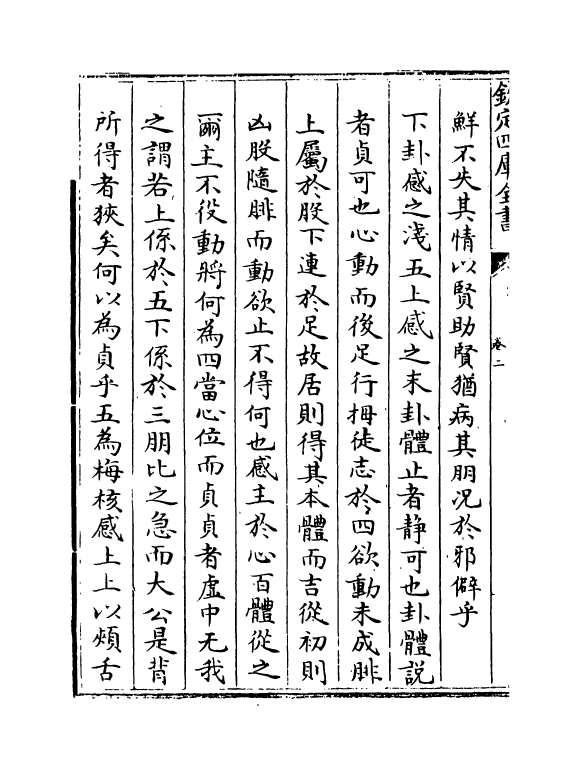 欽定四庫全書
卷二
鮮不失其情以賢助賢猶病其朋况於邪僻乎
下卦感之淺五上感之末卦體止者静可也卦體説
者貞可也心動而後足行拇徒志於四欲動未成腓
上屬於股下連於足故居則得其本體而吉從初則
凶股隨腓而動欲止不得何也感主於心百體從之
爾主不役動將何為四當心位而貞貞者虚中无我
之謂若上係於五下係於三朋比之急而大公是背
所得者狹矣何以為貞乎五為梅核感上上以頰舌